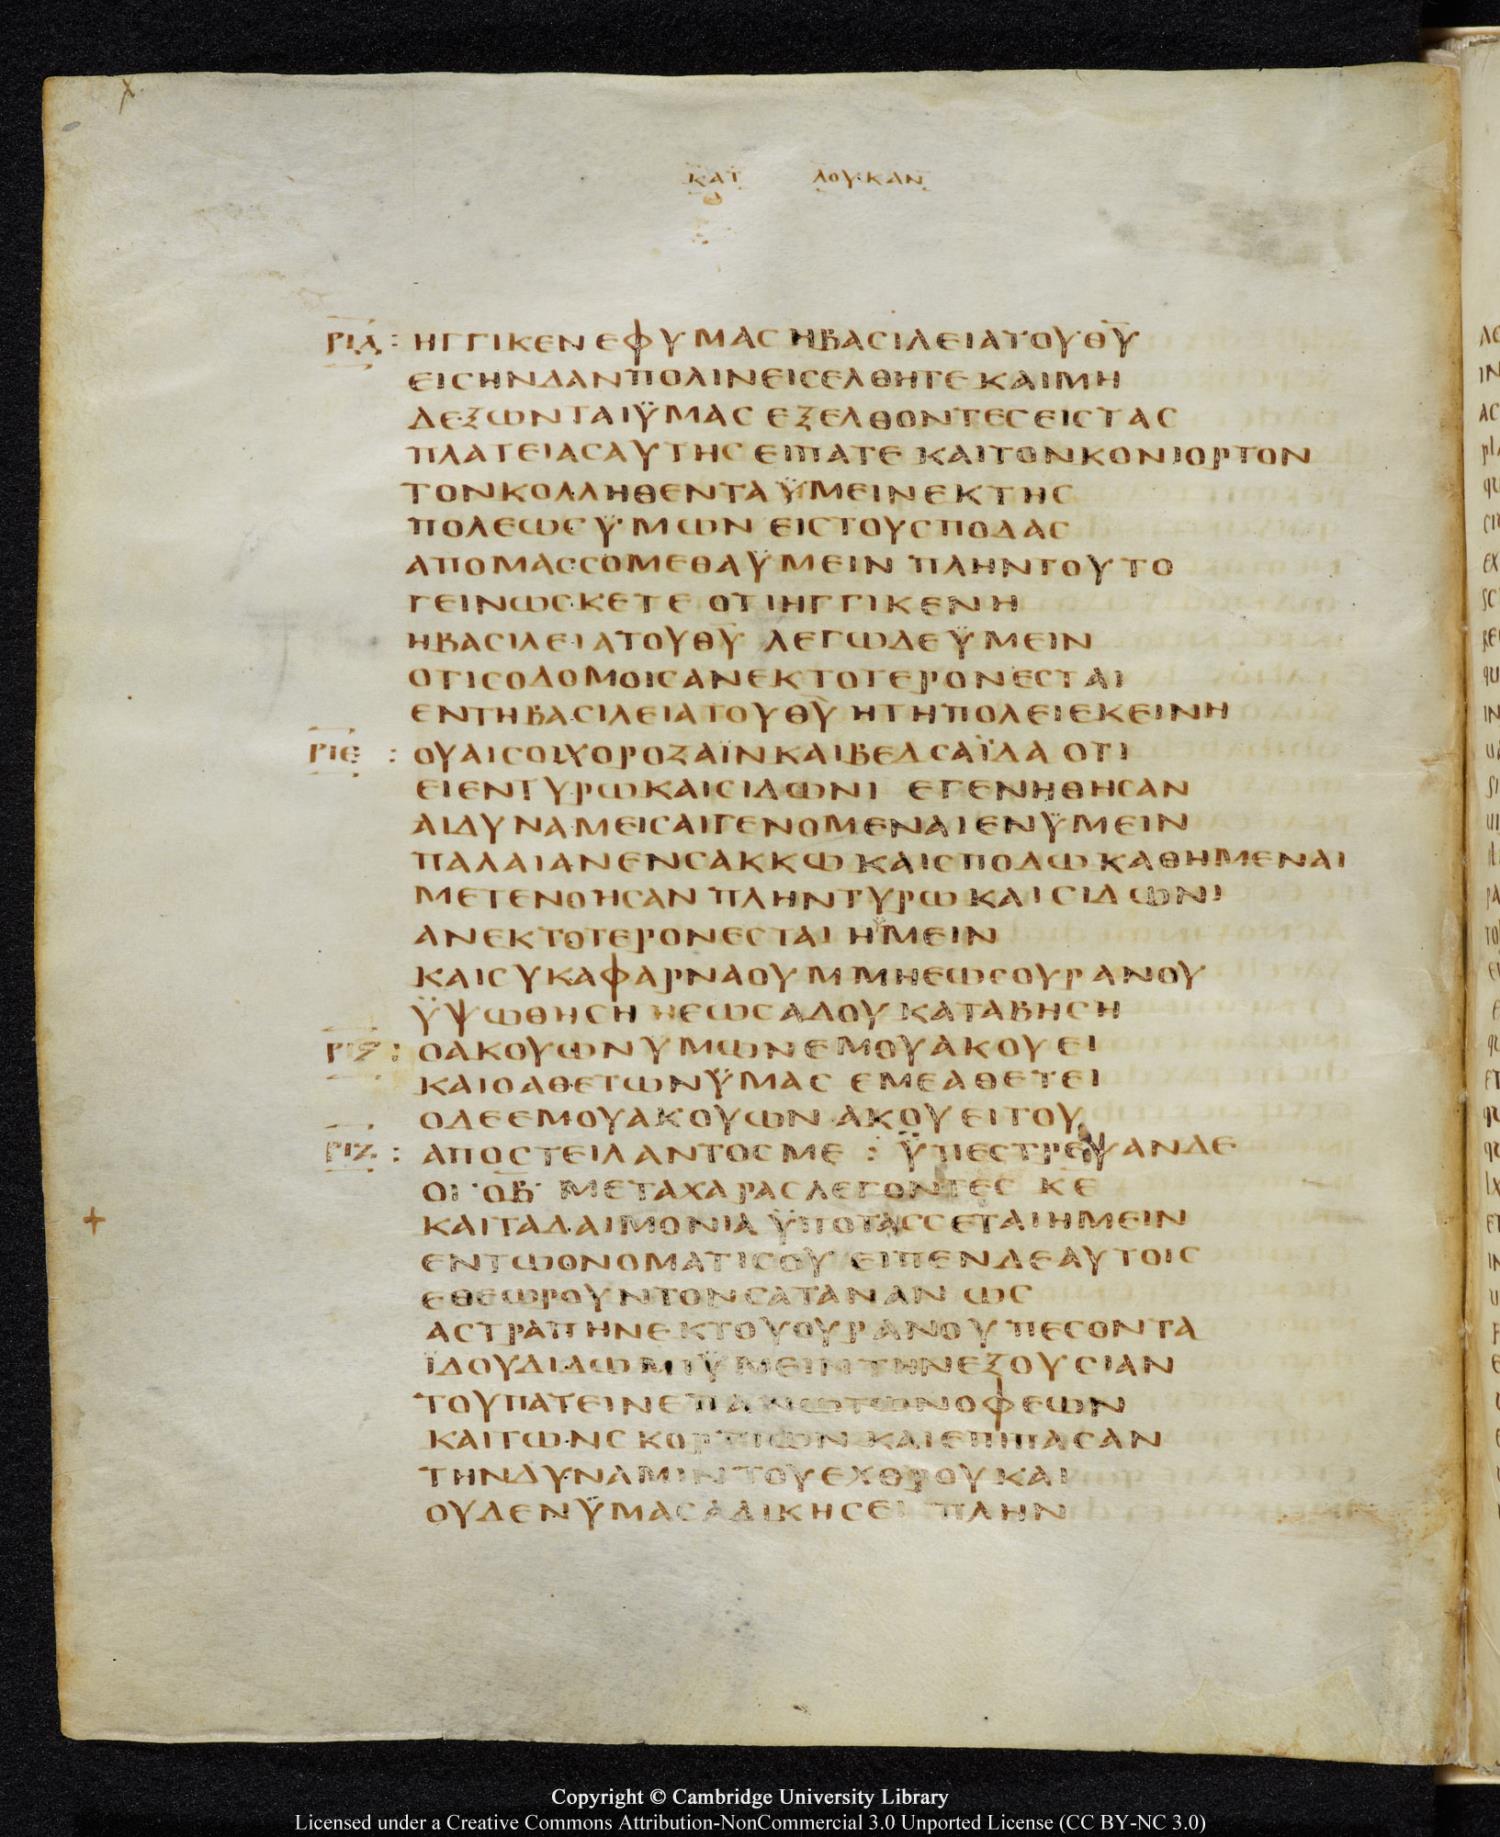 ΚΑΤ ΛΟΥΚΑΝ
ΡΙΔ : ΗΓΓΙΚΕΝ ΕΦΥΜΑΣ ΗΒΑΣΙΛΕΙΑΤΟΥΘΥ
ΕΙΣΗΝΔΑΝΠΟΛΙΝΕΙΣΕΛΘΗΤΕ ΚΑΙΜΗ
ΔΕΞΩΝΤΑΙΫΜΑΣ ΕΞΕΛΘΟΝΤΕΣΕΙΣΤΑΣ
ΠΛΑΤΕΙΑΣΑΥΤΗΣ ΕΙΠΑΤΕ ΚΑΙΤΟΝΚΟΝΙΟΡΤΟΝ
ΤΟΝΚΟΛΛΗΘΕΝΤΑ ΫΜΕΙΝΕΚΤΗΣ
ΠΟΛΕΩΣΫΜΩΝ ΕΙΣΤΟΥΣΠΟΔΑΣ
ΑΠΟΜΑΣΣΟΜΕΘΑΫΜΕΙΝ ΠΛΗΝΤΟΥΤΟ
ΓΕΙΝΩΣΚΕΤΕ ΟΤΙΗΓΓΙΚΕΝΗ
ΗΒΑΣΙΛΕΙΑΤΟΥΘΥ ΛΕΓΩΔΕΫΜΕΙΝ
ΟΤΙΣΟΔΟΜΟΙΣΑΝΕΚΤΟΤΕΡΟΝΕΣΤΑΙ
ΕΝΤΗΒΑΣΙΛΕΙΑΤΟΥΘΥ ΗΤΗΠΟΛΕΙΕΚΕΙΝΗ
ΡΙΕ : ΟΥΑΙΣΟΙΧΟΡΟΖΑΪΝΚΑΙΒΕΔΣΑΪΔΑ ΟΤΙ
ΕΙΕΝΤΥΡΩΚΑΙΣΙΔΩΝΙ ΕΓΕΝΗΘΗΣΑΝ
ΑΙΔΥΝΑΜΕΙΣΑΙΓΕΝΟΜΕΝΑΙΕΝΫΜΕΙΝ
ΠΑΛΑΙΑΝΕΝΣΑΚΚΩ ΚΑΙΣΠΟΔΩ ΚΑΘΗΜΕΝΑΙ
ΜΕΤΕΝΟΗΣΑΝ ΠΛΗΝΤΥΡΩ ΚΑΙΣΙΔΩΝΙ
ΑΝΕΚΤΟΤΕΡΟΝΕΣΤΑΙ ΗΜΕΙΝ
ΚΑΙΣΥΚΑΦΑΡΝΑΟΥΜ ΜΗΕΩΣΟΥΡΑΝΟΥ
ΫΨΩΘΗΣΗ ΗΕΩΣΑΔΟΥ ΚΑΤΑΒΗΣΗ
ΡΙϚ : ΟΑΚΟΥΩΝΥΜΩΝΕΜΟΥΑΚΟΥΕΙ
ΚΑΙΟΑΘΕΤΩΝΫΜΑΣ ΕΜΕΑΘΕΤΕΙ
ΟΔΕΕΜΟΥΑΚΟΥΩΝ ΑΚΟΥΕΙΤΟΥ
ΡΙΖ : ΑΠΟΣΤΕΙΛΑΝΤΟΣΜΕ : ΫΠΕΣΤΡΕΨΑΝΔΕ
ΟΙ ΟΒ ΜΕΤΑΧΑΡΑΣΛΕΓΟΝΤΕΣ ΚΕ
ΚΑΙΤΑΔΑΙΜΟΝΙΑ ΫΠΟΤΑΣΣΕΤΑΙΗΜΕΙΝ
ΕΝΤΩΟΝΟΜΑΤΙΣΟΥ ΕΙΠΕΝΔΕΑΥΤΟΙΣ
ΕΘΕΩΡΟΥΝΤΟΝΣΑΤΑΝΑΝ ΩΣ
ΑΣΤΡΑΠΗΝΕΚΤΟΥΟΥΡΑΝΟΥ ΠΕΣΟΝΤΑ
ΪΔΟΥΔΙΔΩΜΙΫΜΕΙΝΤΗΝΕΞΟΥΣΙΑΝ
ΤΟΥΠΑΤΕΙΝΕΠΑΝΩΤΩΝΟΦΕΩΝ
ΚΑΙΤΩΝΣΚΟΡΠΙΩΝ ΚΑΙΕΠΙΠΑΣΑΝ
ΤΗΝΔΥΝΑΜΙΝΤΟΥΕΧΘΡΟΥ ΚΑΙ
ΟΥΔΕΝΫΜΑΣΑΔΙΚΗΣΕΙ ΠΛΗΝ
Copyright © Cambridge University Library
Licensed under a Creative Commons Attribution-NonCommercial 3.0 Unported License (CC BY-NC 3.0)